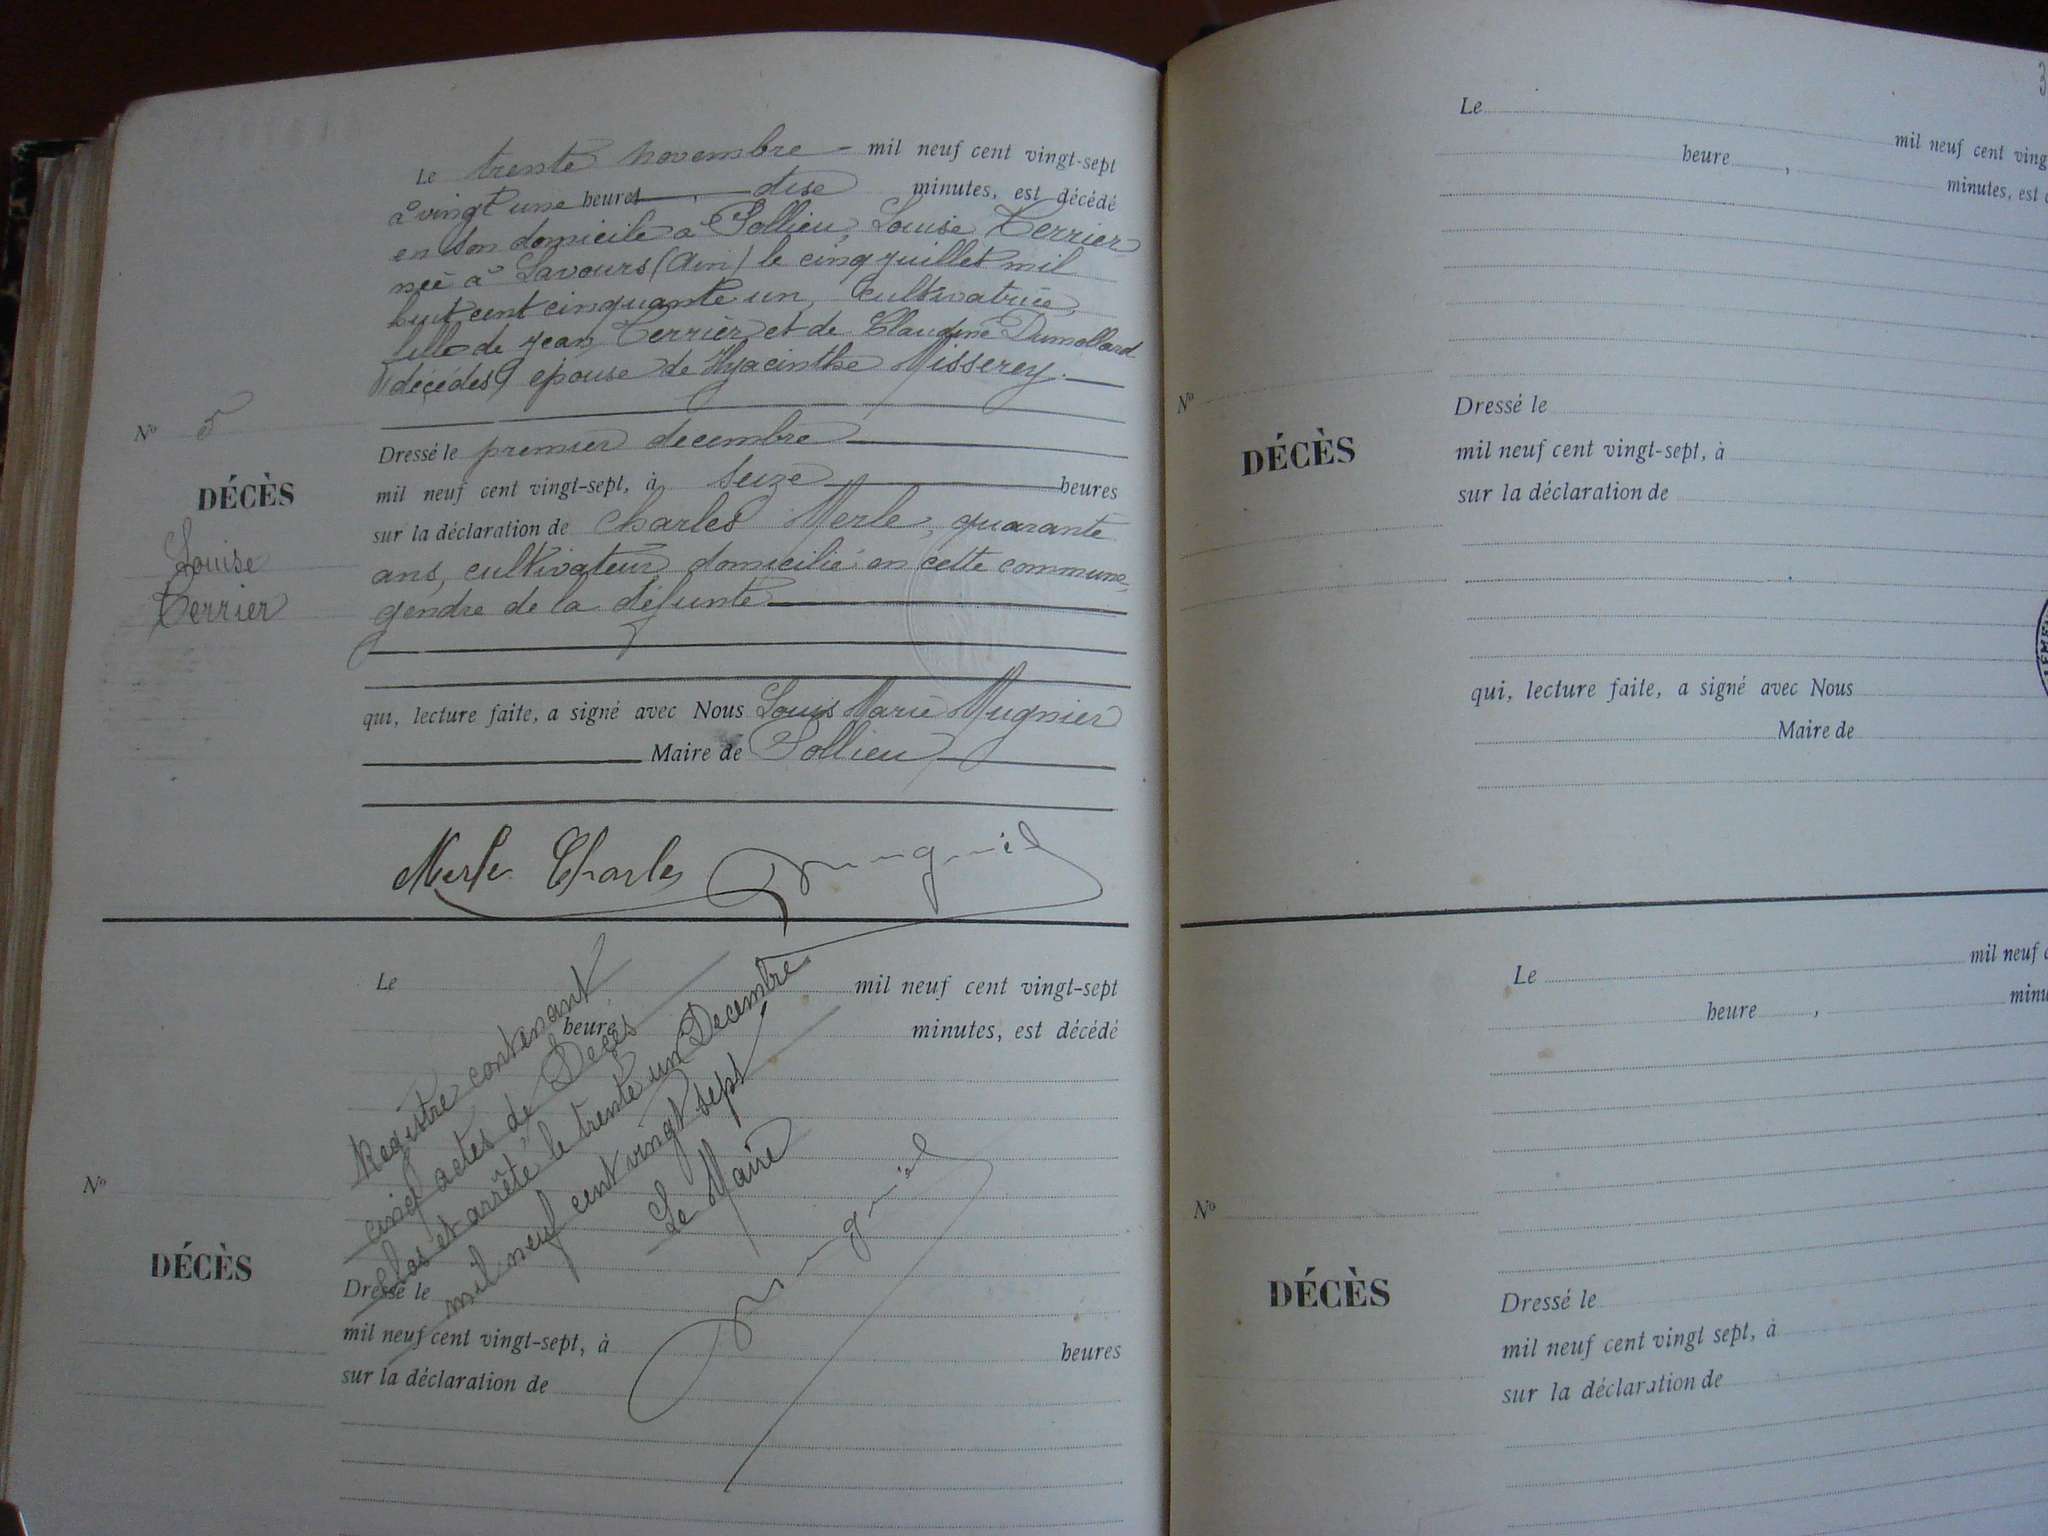 Le trente novembre - mil neuf cent vingt-sept
à vingt une heures, dise minutes, est décédé
en son domicile à Pollieu, Louise Terrier
née à Lavours (Ain) le cinq juillet mil
huit cent cinquante un, cultivatrice,
fille de Jean Terrier et de Claudine Dumollard
décédés, épouse de Hyacinthe Misserey.
Nº 5
DÉCÈS
Louise
Terrier
Dressé le premier decembre
mil neuf cent vingt-sept, à seize heures
sur la déclaration de Charles Merle, quarante
ans, cultivateur domicilié en cette commune,
gendre de la défunte
qui, lecture faite, a signé avec Nous Louis Marie Mugnier
Maire de Pollieu
Merle Charles Mugnier
Le mil neuf cent vingt-sept
heure minutes, est décédé
Registre contenant
cinq actes de Décès
clos et arrêté le trente un Decembre
mil neuf cent vingt sept
Le Maire
Mugnier
Nº
DÉCÈS
Dressé le
mil neuf cent vingt-sept, à heures
sur la déclaration de
3
Le mil neuf cent ving
heure , minutes, est
Nº
DÉCÈS
Dressé le
mil neuf cent vingt-sept, à
sur la déclaration de
qui, lecture faite, a signé avec Nous
Maire de
Le mil neuf
heure , minu
Nº
DÉCÈS
Dressé le
mil neuf cent vingt sept, à
sur la déclaration de